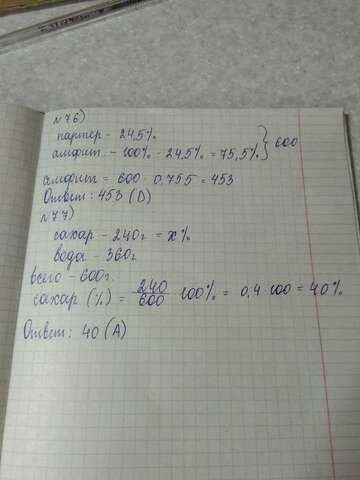 n 76)
партер - 24,5%
амфит - 100% - 24,5% = 75,5% } 600
амфит = 600 · 0,755 = 453
Ответ: 453 (D)
n 77)
сахар - 240г = x%
вода - 360г.
всего - 600г.
сахар (%) = 240/600 · 100% = 0,4 · 100 = 40%
Ответ: 40 (А)